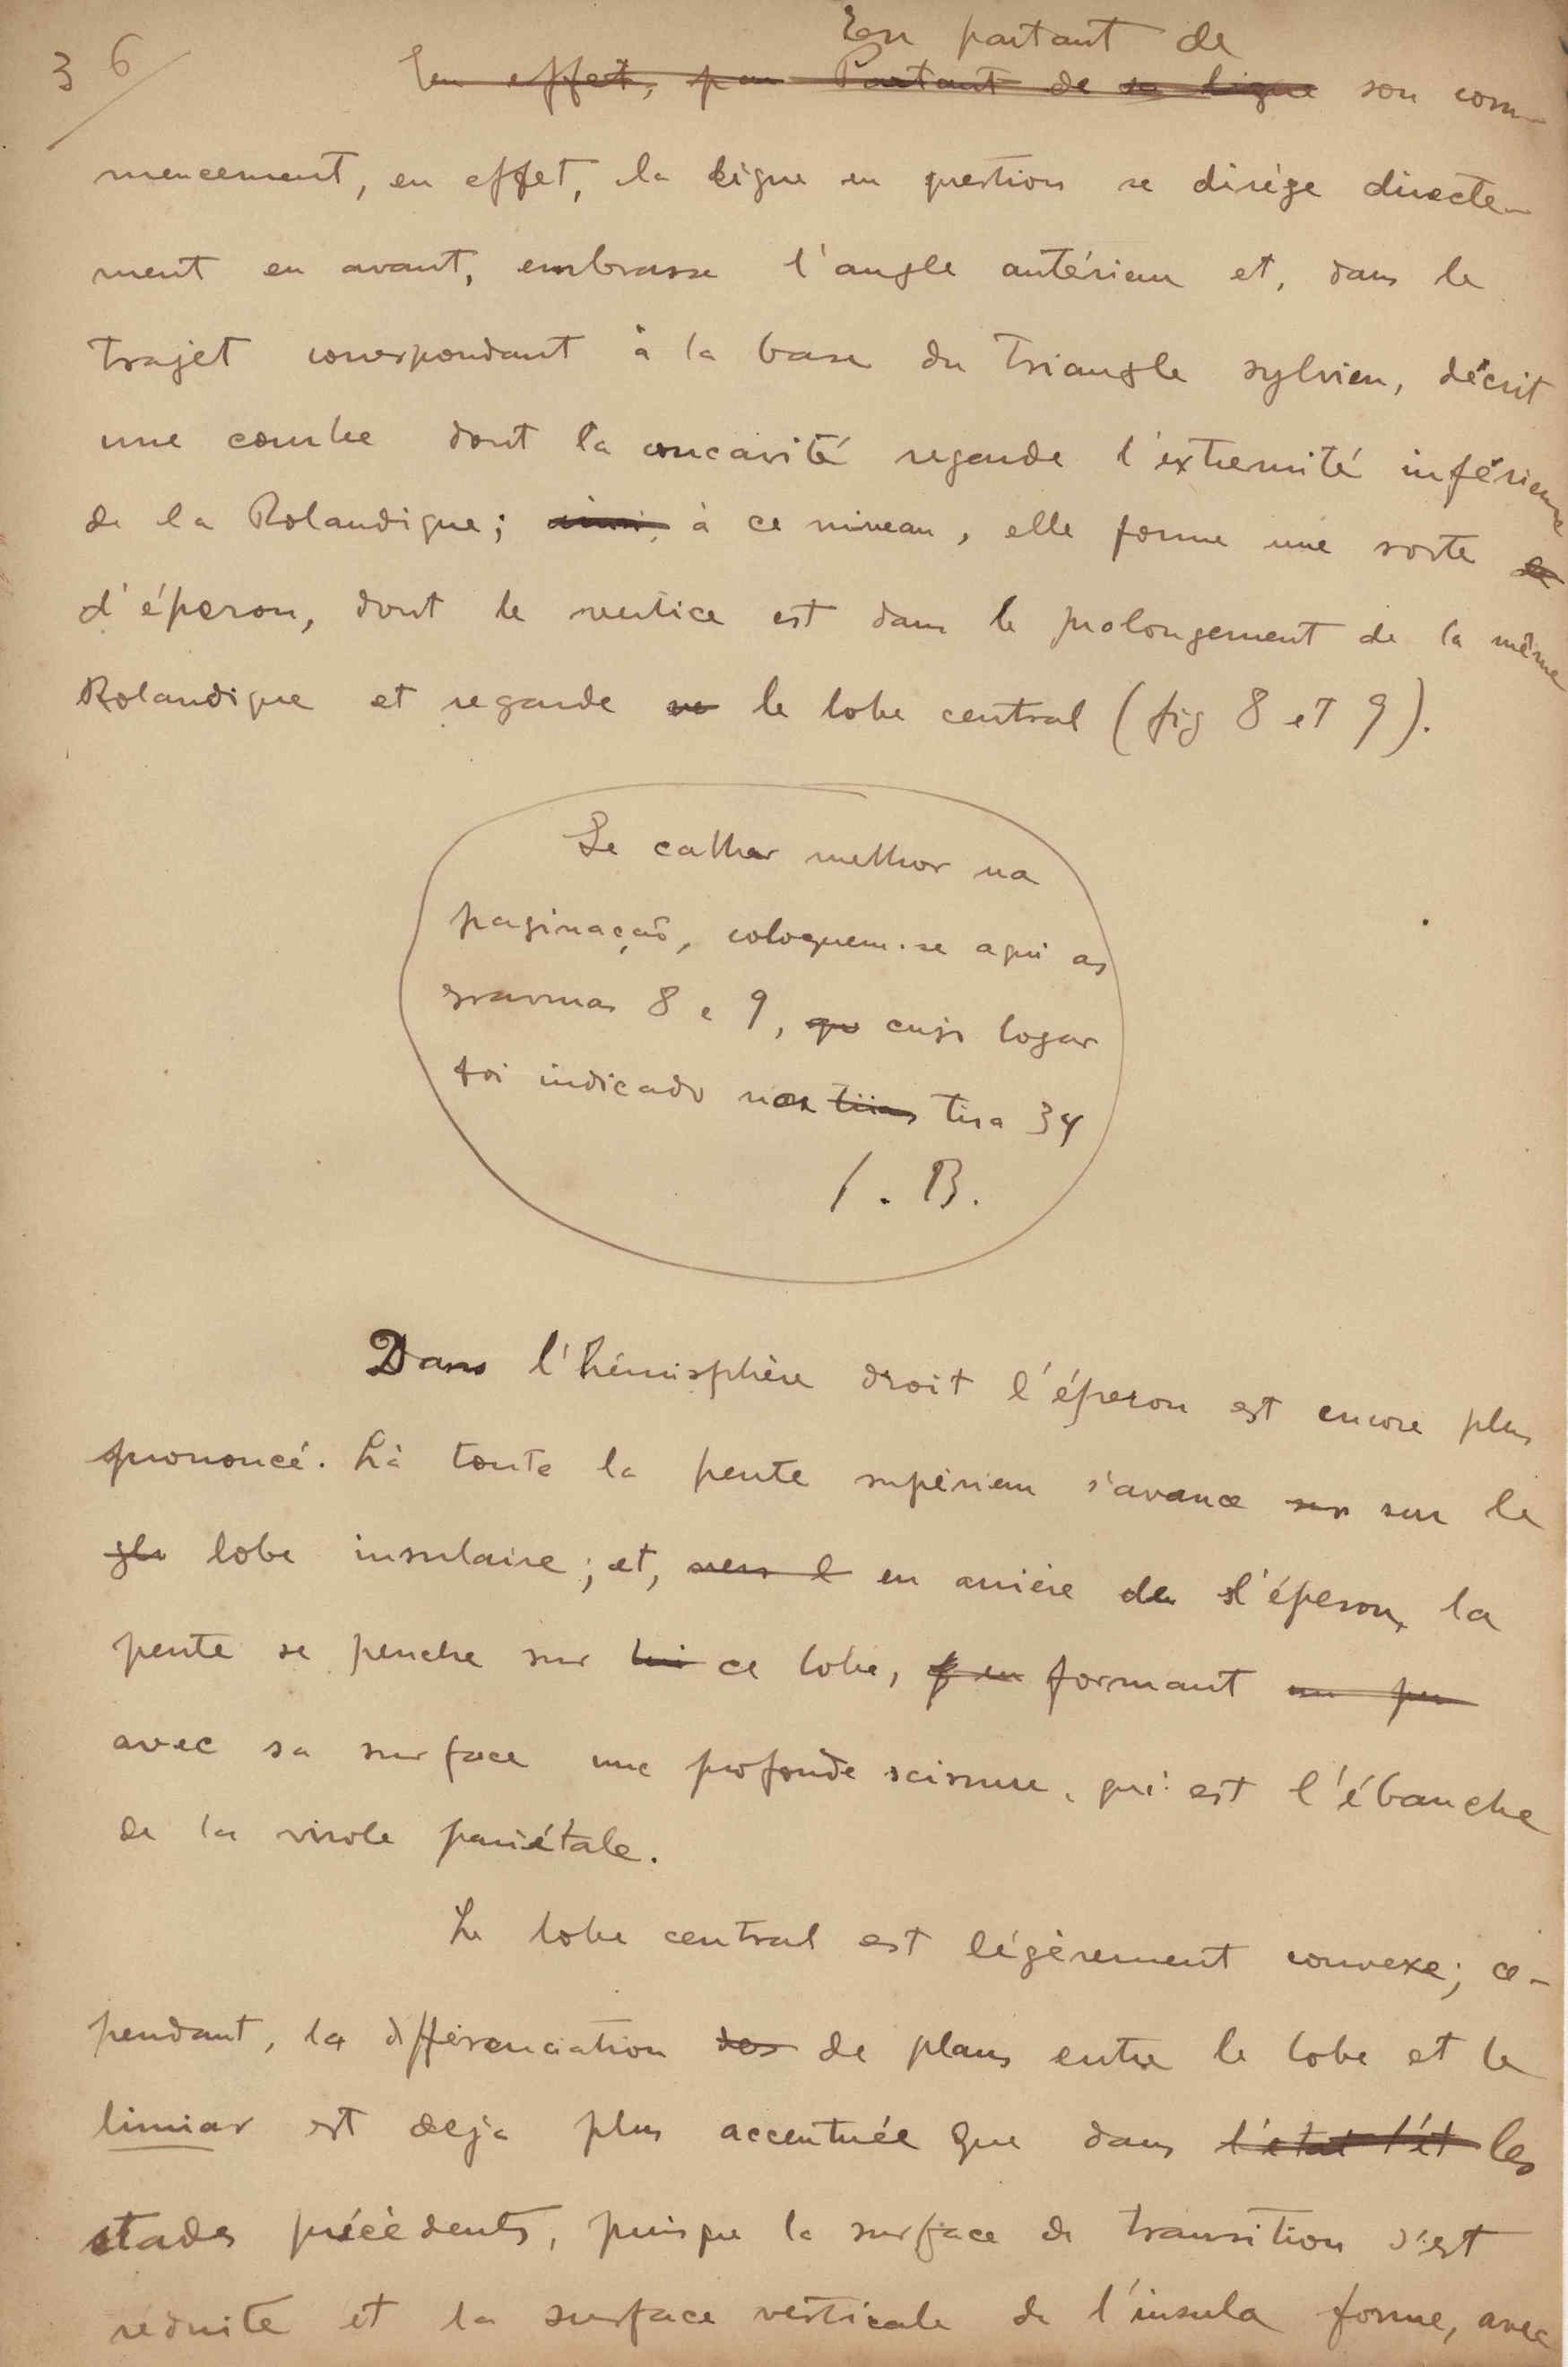 36
En partant de
En effet, par Partant de sa ligne son com-
mencement, en effet, la ligne en question se dirige directe-
ment en avant, embrasse l'angle antérieur et, dans le
trajet correspondant à la base du triangle sylvien, décrit
une courbe dont la concavité regarde l'extremité inférieure
de la Rolandique; ainsi, à ce niveau, elle forme une sorte de
d'éperon, dont le vertice est dans le prolongement de la même
Rolandique et regarde ve le lobe central (fig 8 et 9).
Se calhar melhor na
paginação, coloquem-se aqui as
gravuras 8 e 9, qu cujo logar
foi indicado na tiras tira 34
B.
Dans l'hémisphère droit l'éperon est encore plus
prononcé. Là toute la pente supérieur s'avance sur sur le
glo lobe insulaire; et, vers l en arrière de l'éperon, la
pente se penche sur lui ce lobe, f en formant un peu
avec sa surface une profonde scissure, qui est l'ébauche
de la virole pariétale.
Le lobe central est légèrement convexe; ce-
pendant, la différenciation des de plans entre le lobe et le
limiar est deja plus accentuée que dans l'état l'ét les
stades précédents, puisque la surface de transition s'est
réduite et la surface verticale de l'insula forme, avec